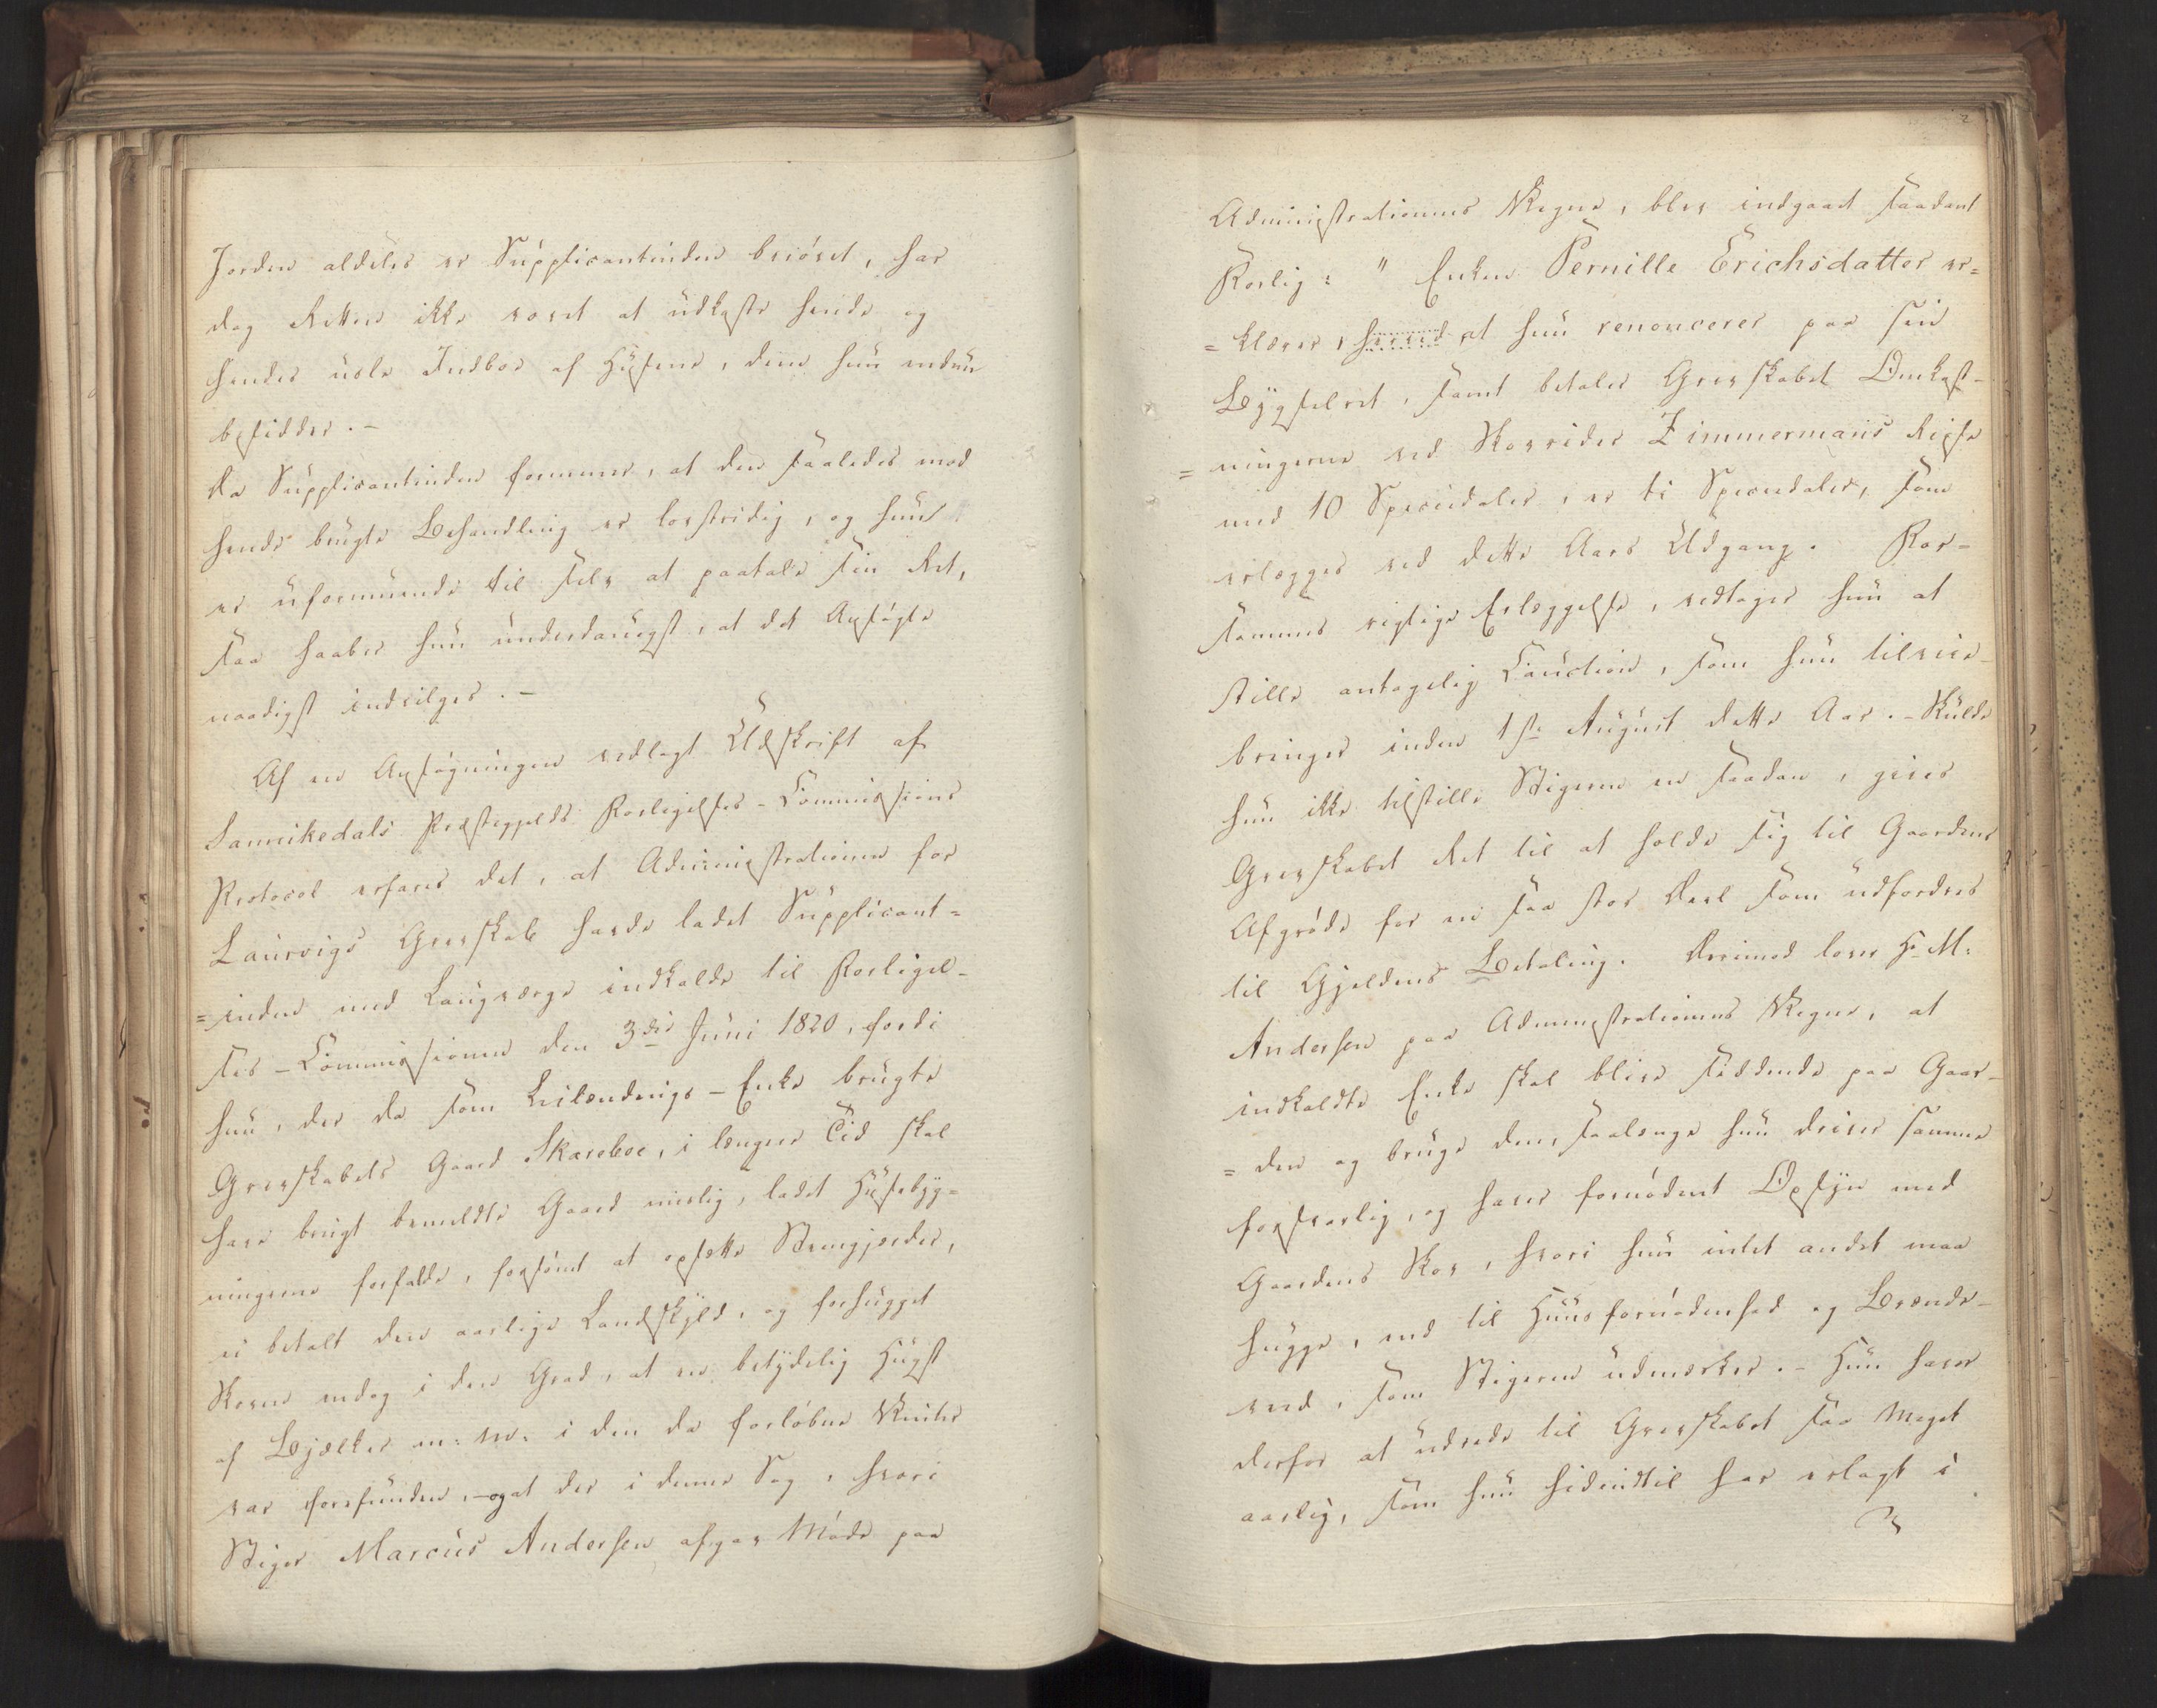 Jorden aldeles er Supplicantinden berövet, har
dog Retten ikke vovet at udkaste hende og
hendes usle Indboe af Husene, dem hun endnu
besidder. -
Da Supplicantinden formener, at den saaledes mod
hende brugte Behandling er lovstridig, og hun
er uformuende til selv at paatale sin Ret,
saa haaber hun underdanigst, at det Ansögte
naadigst indvilges. -
Af en Ansögningen vedlagt Udskrift af
Sannikedals Præstegjelds Forligelses-Commissions
Protocol erfares det, at Administrationen for
Laurvigs Grevskab havde ladet Supplicant=
=inden med Laugværge indkalde til Forligel-
ses-Commissionen den 3die Juni 1820, fordi
hun, der da som Leilændings-Enke brugte
Grevskabets Gaard Skareboe, i længere Tid skal
have brugt bemeldte Gaard misslig, ladet Husebyg=
ningerne forfalde, forsömt at opsætte Steengjerder,
ei betalt den aarlige Landskyld, og forhugget
Skoven endog i den Grad, at en betydelig Hugst
af Bjælker m: m: i den da forlöbne Vinter
var forefunden, - og at der i denne Sag, hvori
Stiger Marcus Andersen afgav Möde paa
Administrationens Vegne, blev indgaaet saadant
Forlig: " Enken Pernille Erichsdatter er=
=klærer, herved at hun renoncerer paa sin
Bygselret, samt betaler Grevskabet Omkost-
=ningerne ved Skovrider Zimmermans Reise
med 10 Speciedaler, er ti Speciedaler, som
erlægges ved dette Aars Udgang. For=
sammes rigtige Erlæggelse, vedtager hun at
stille antagelig Caution, som hun tilveie-
bringer inden 1ste August dette Aar. - Skulde
hun ikke tilstille Stigeren en saadan, gives
Grevskabet Ret til at holde sig til Gaardens
Afgröde for en saa stor Deel som udfordres
til Gjeldens Betaling. Derimod lover Hr M:
Andersen paa Administrationens Vegne, at
indkaldte Enke skal blive siddende paa Gaar-
=den og bruge den, saalænge hun driver samme
forsvarlig, og haver fornödent Opsyn med
Gaardens Skov, hvori hun intet andet maa
hugge, end til Huusfornödenhed og Brænde-
ved, som Stigeren udmærker. - Hun haver
derfor at udrede til Grevskabet saa Meget
aarlig, som hun hidindtil har erlagt i